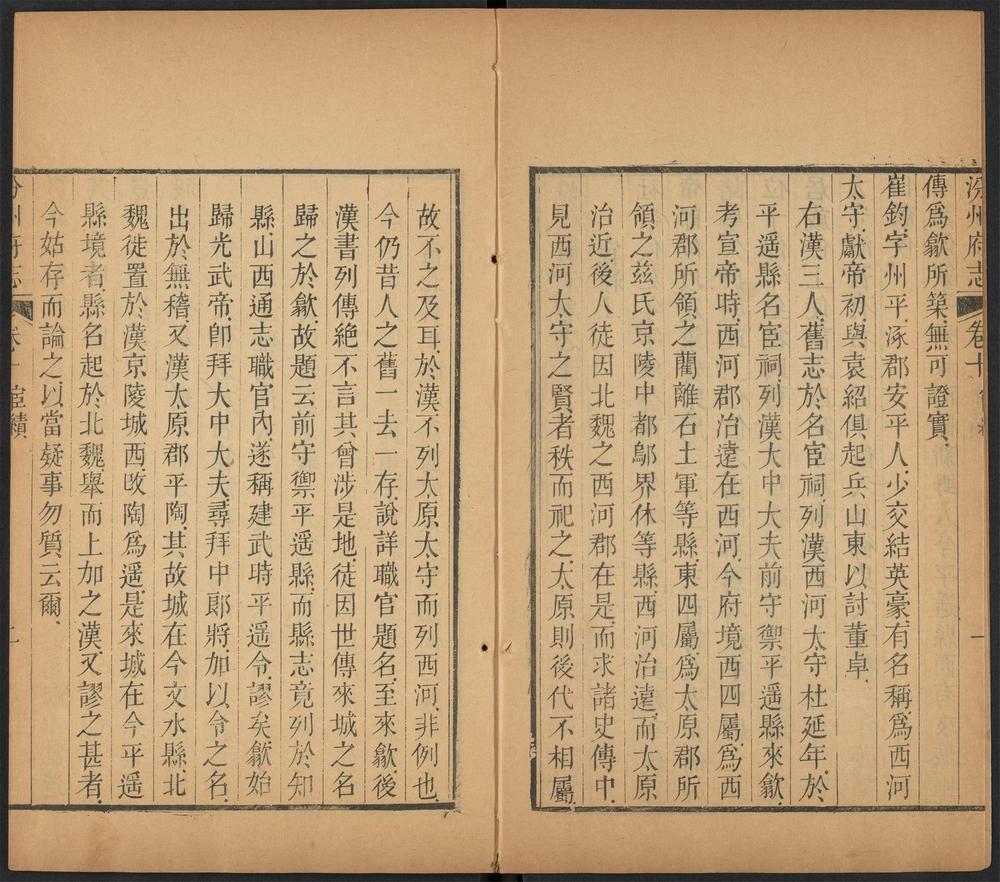 汾州府志 卷十 宦績 一
傳爲歙所築無可證實
崔鈞字州平涿郡安平人少交結英豪有名稱爲西河
太守獻帝初與袁紹俱起兵山東以討董卓
右漢三人舊志於名宦祠列漢西河太守杜延年於
平遥縣名宦祠列漢大中大夫前守禦平遥縣來歙
考宣帝時西河郡治遠在西河今府境西四屬爲西
河郡所領之藺離石土軍等縣東四屬爲太原郡所
領之兹氏京陵中都鄔界休等縣西河治遠而太原
治近後人徒因北魏之西河郡在是而求諸史傳中
見西河太守之賢者秩而祀之太原則後代不相屬
故不之及耳於漢不列太原太守而列西河非例也
今仍昔人之舊一去一存說詳職官題名至來歙後
漢書列傳絶不言其曾涉是地徒因世傳來城之名
歸之於歙故題云前守禦平遥縣而縣志竟列於知
縣山西通志職官內遂稱建武時平遥令謬矣歙始
歸光武帝卽拜大中大夫尋拜中郎將加以令之名
出於無稽又漢太原郡平陶其故城在今文水縣北
魏徒置於漢京陵城西改陶爲遥是來城在今平遥
縣境者縣名起於北魏舉而上加之漢又謬之甚者
今姑存而論之以當疑事勿質云爾
汾州府志 卷十 宦績 一